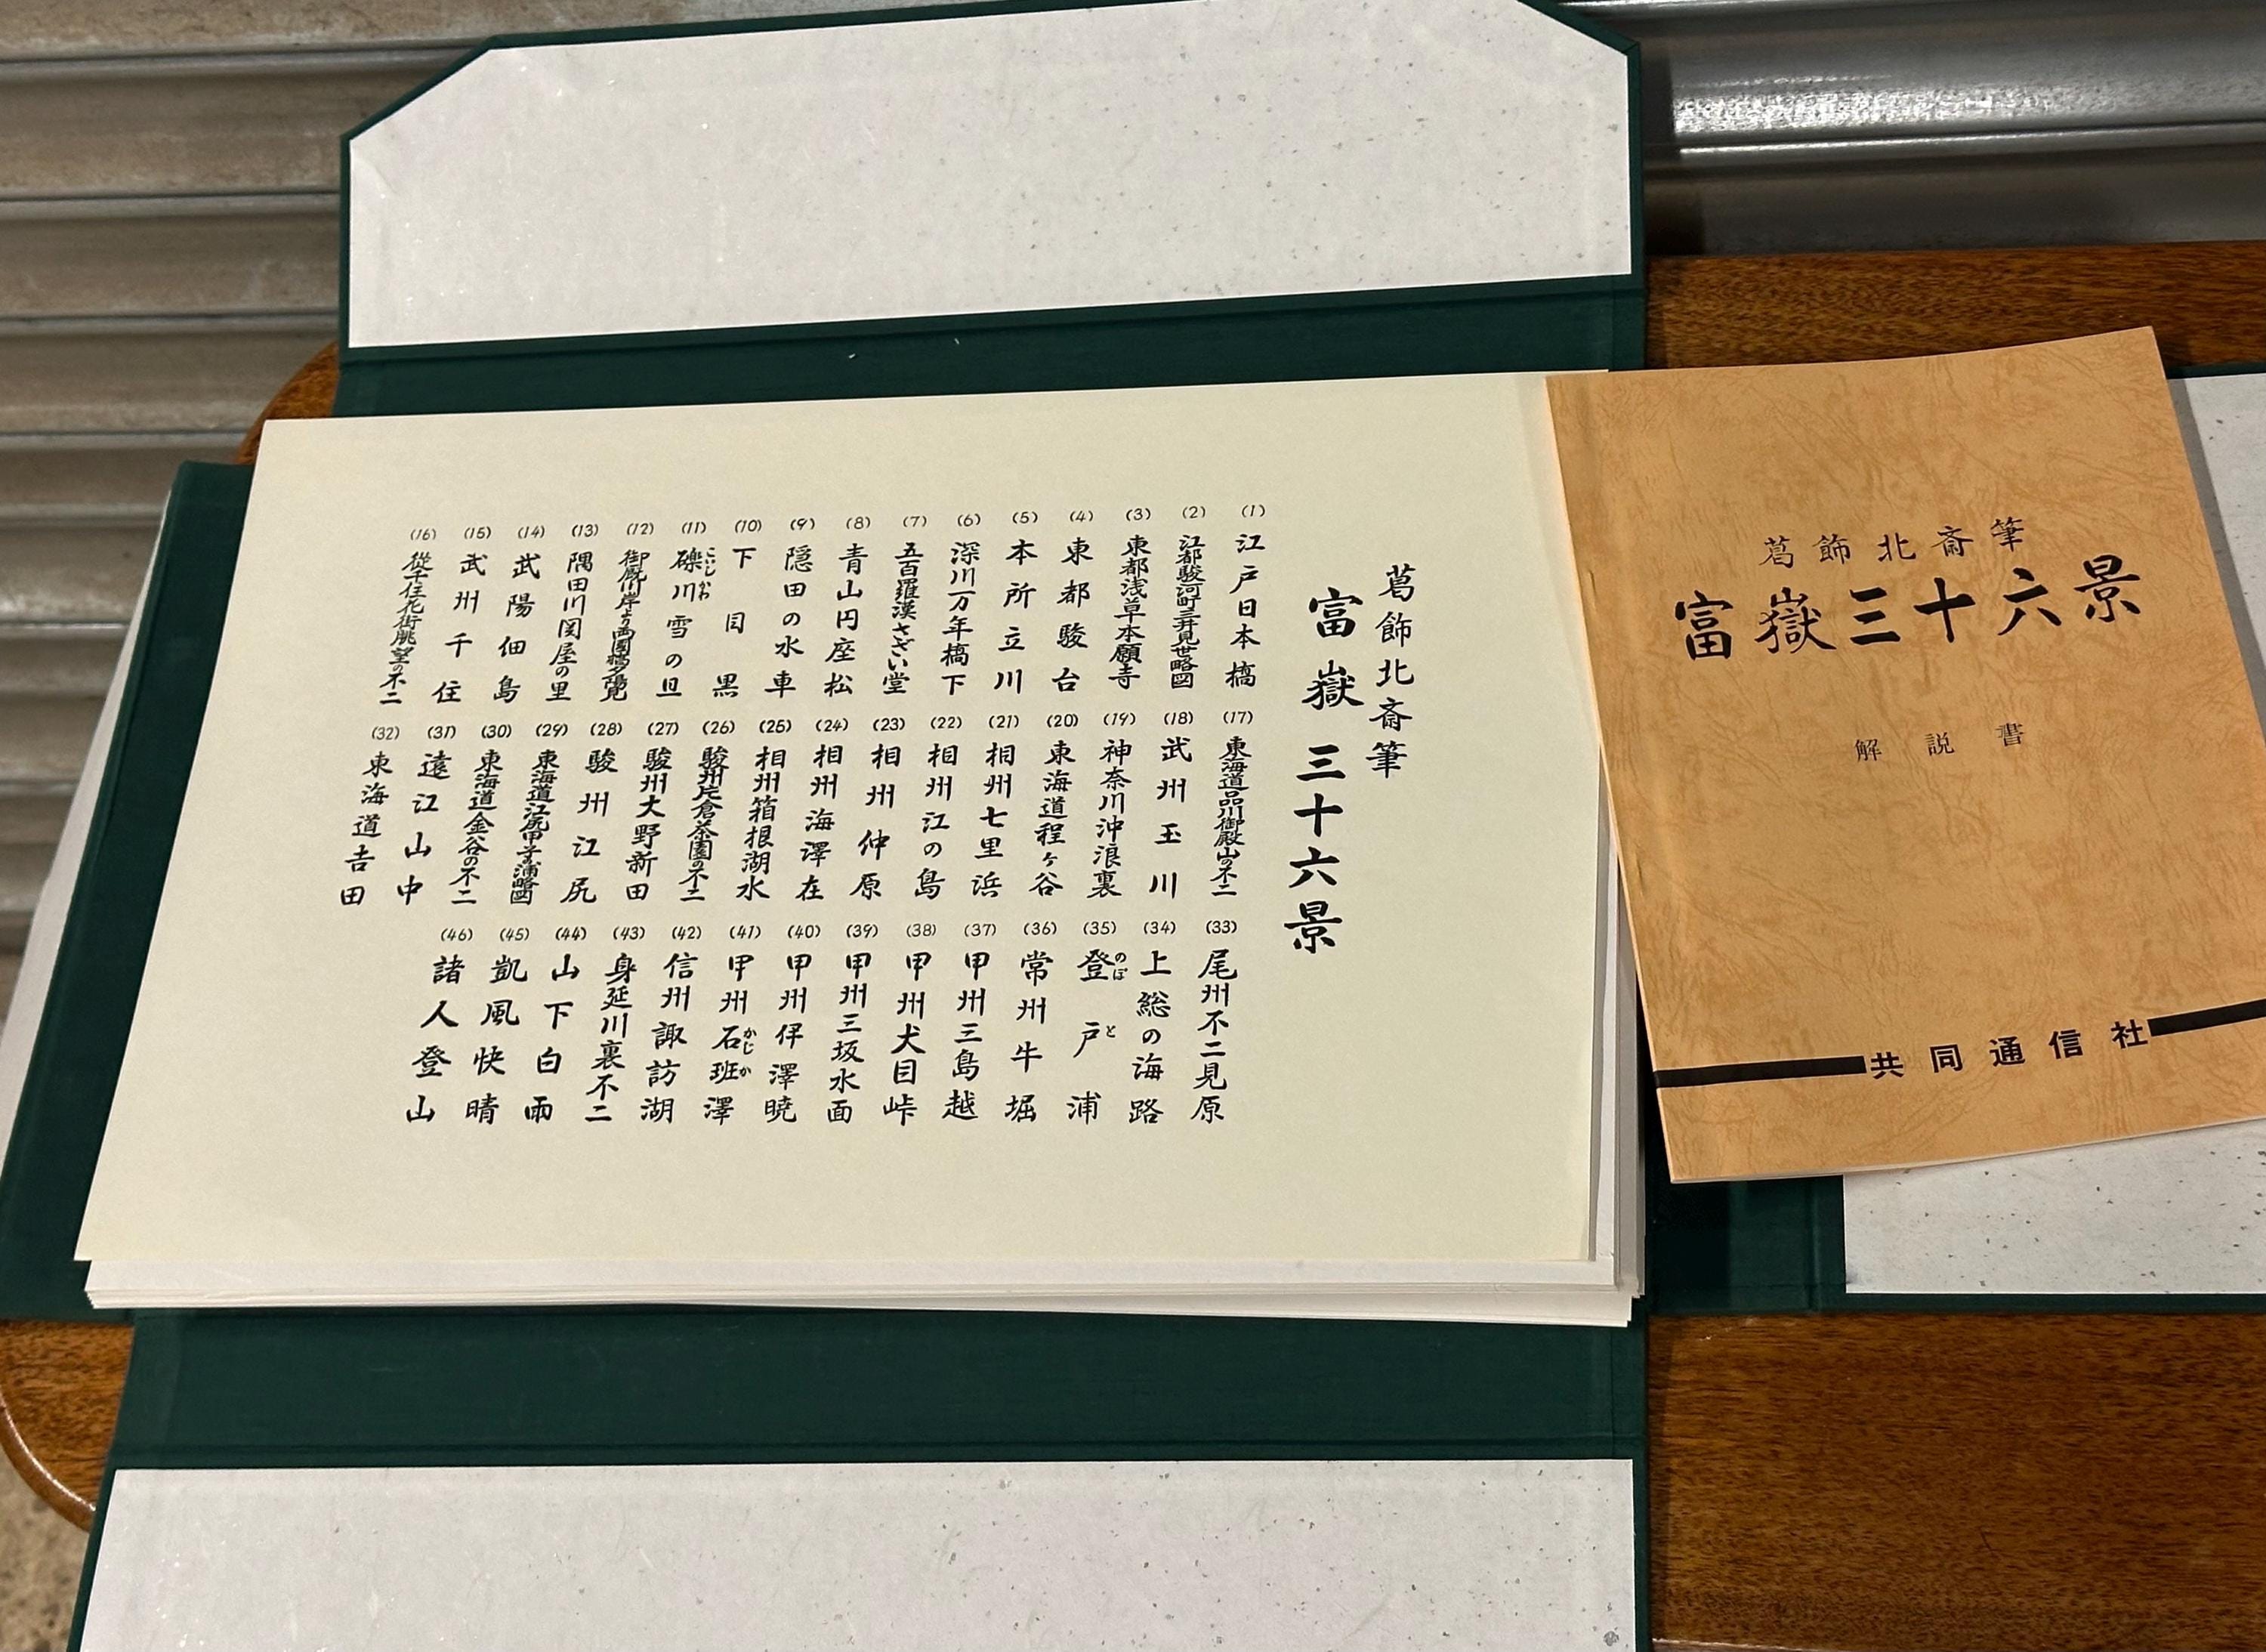 葛飾北斎筆
富嶽三十六景
(1) 江戸日本橋
(2) 江都駿河町三井見世略図
(3) 東都浅草本願寺
(4) 東都駿台
(5) 本所立川
(6) 深川万年橋下
(7) 五百羅漢さざい堂
(8) 青山円座松
(9) 隠田の水車
(10) 下目黒
(11) 礫川雪の旦
こじかわ
(12) 御厩川岸より両国橋夕陽見
(13) 隅田川関屋の里
(14) 武陽佃島
(15) 武州千住
(16) 従千住花街眺望の不二
(17) 東海道品川御殿山の不二
(18) 武州玉川
(19) 神奈川沖浪裏
(20) 東海道程ヶ谷
(21) 相州七里浜
(22) 相州江の島
(23) 相州仲原
(24) 相州海澤在
(25) 相州箱根湖水
(26) 駿州片倉茶園の不二
(27) 駿州大野新田
(28) 駿州江尻
(29) 東海道江尻田子の浦略図
(30) 東海道金谷の不二
(31) 遠江山中
(32) 東海道吉田
(33) 尾州不二見原
(34) 上総の海路
(35) 登戸浦
のぼと
(36) 常州牛堀
(37) 甲州三島越
(38) 甲州犬目峠
(39) 甲州三坂水面
(40) 甲州伊澤暁
(41) 甲州石班澤
かじか
(42) 信州諏訪湖
(43) 身延川裏不二
(44) 山下白雨
(45) 凱風快晴
(46) 諸人登山
葛飾北斎筆
富嶽三十六景
解説書
共同通信社